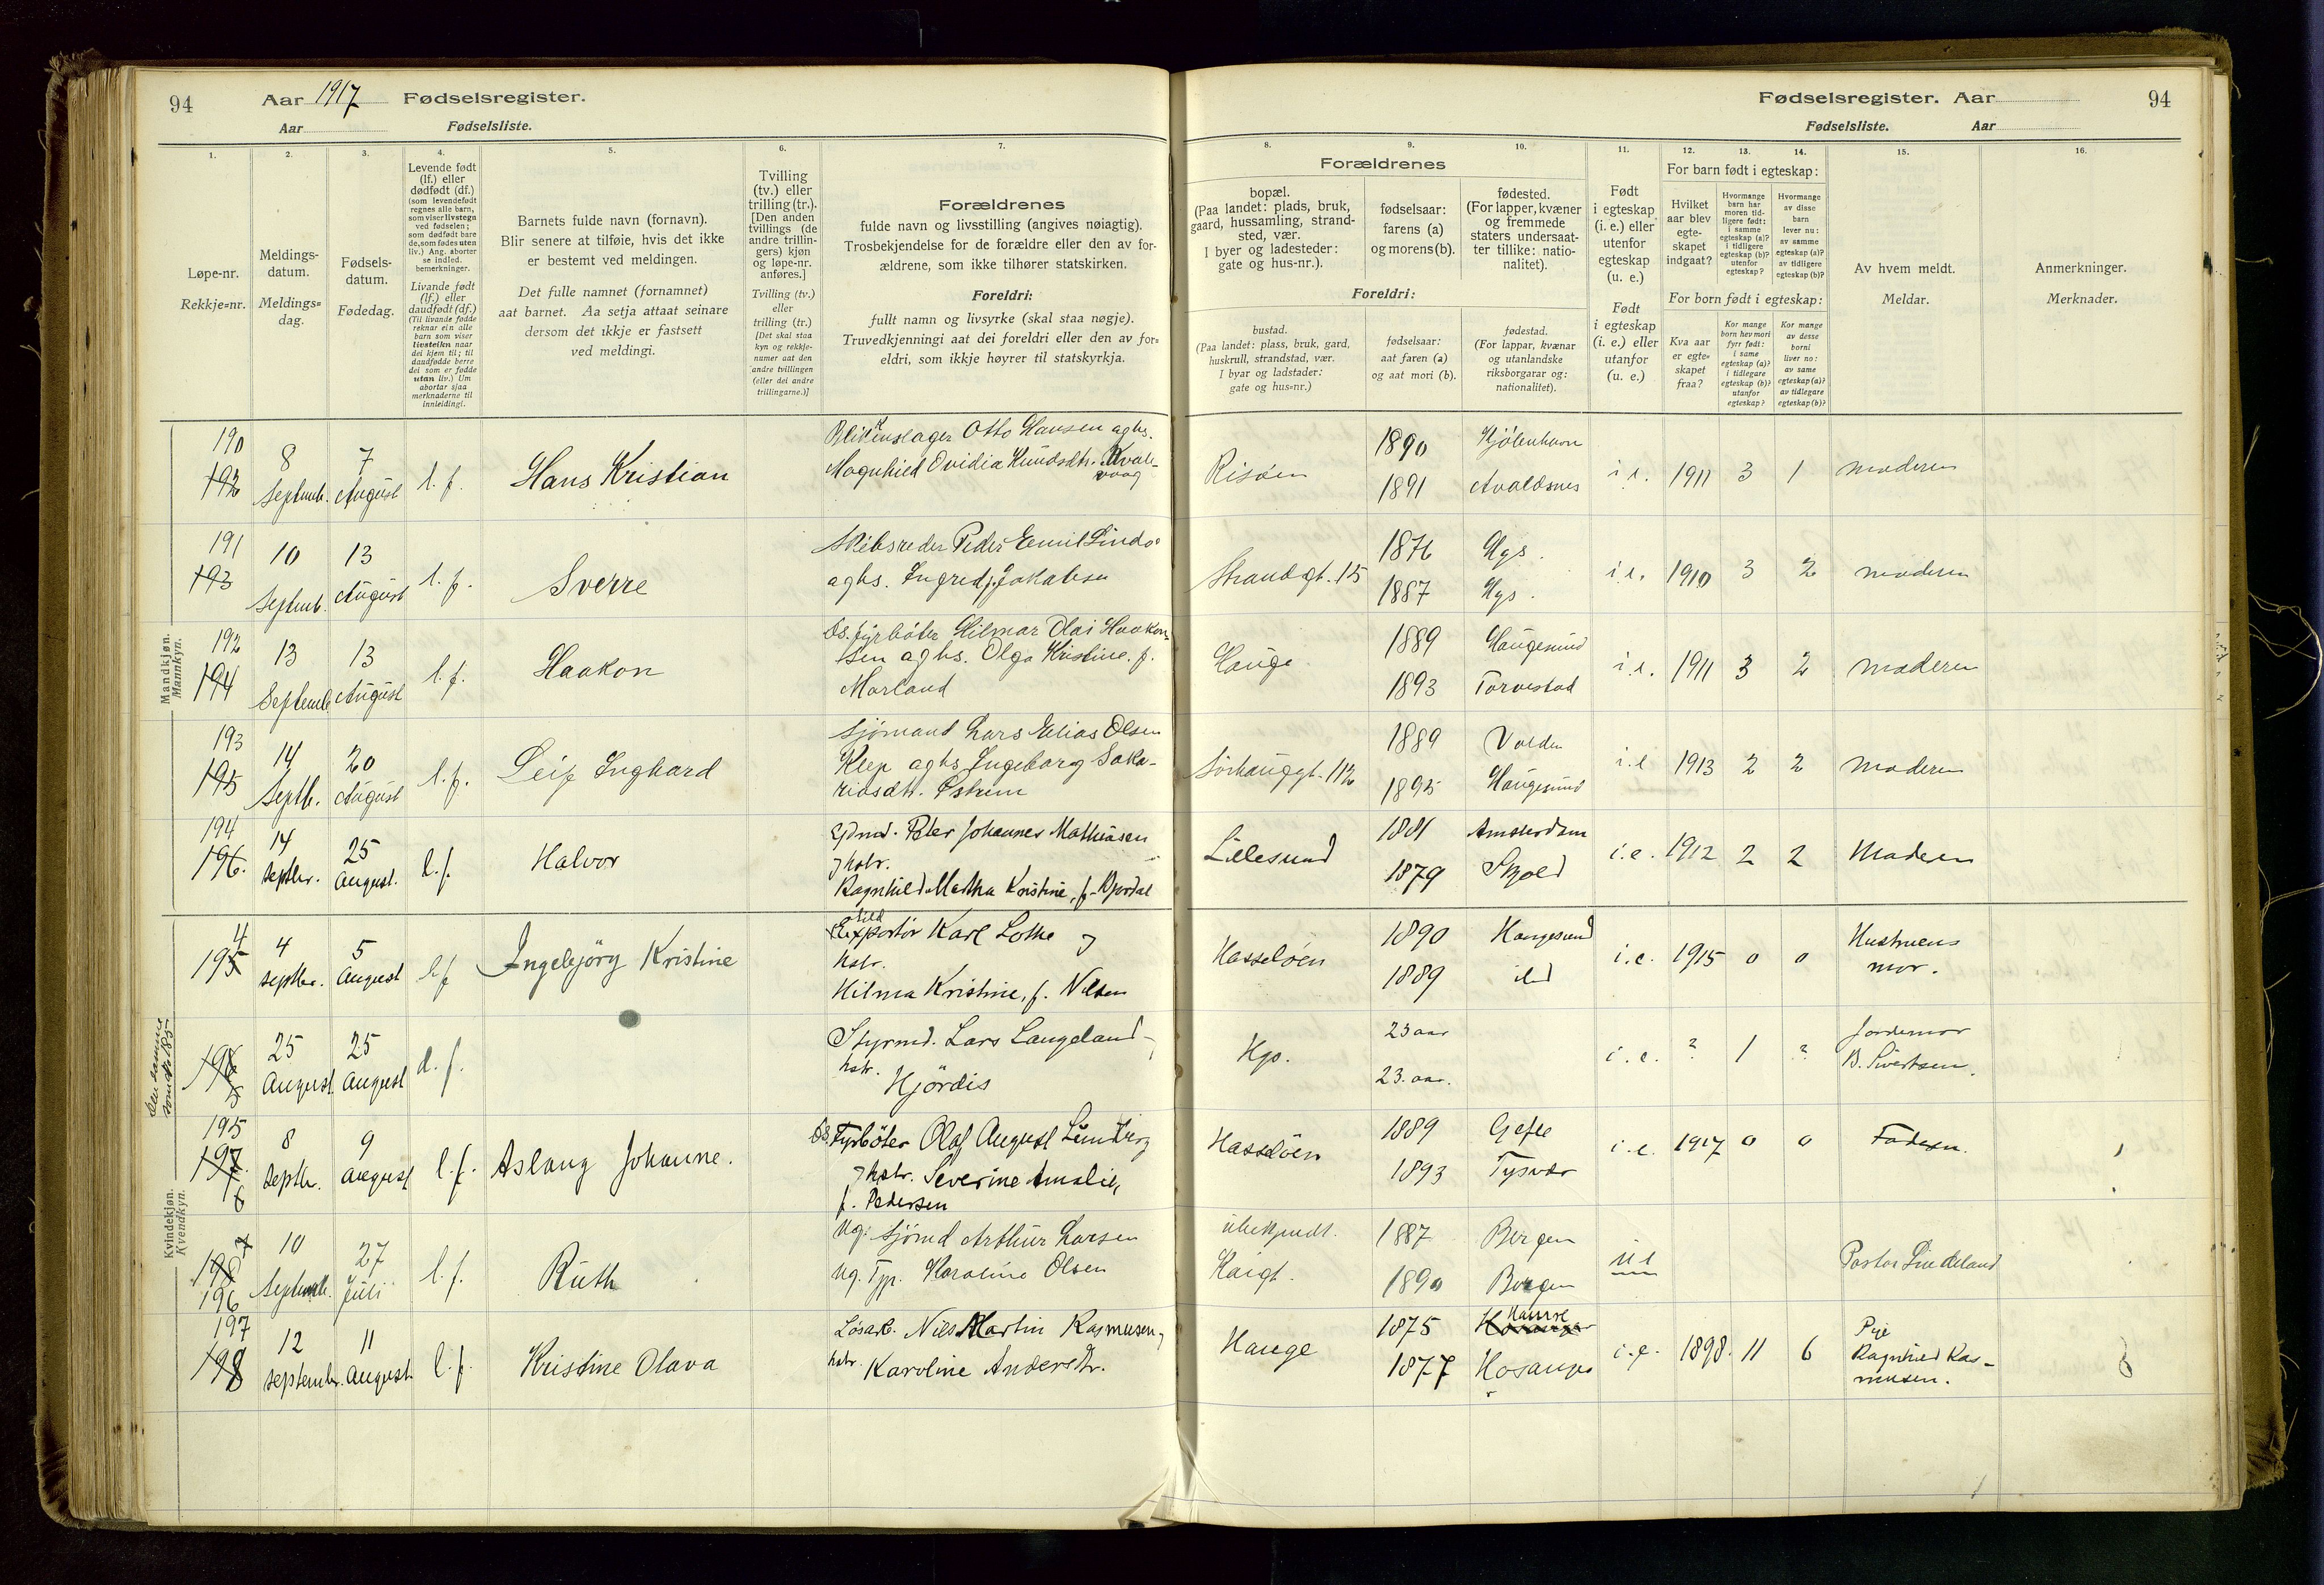 94 Aar 1917 Fødselsregister.
Aar Fødselsliste.
Fødselsregister. Aar 94
Fødselsliste. Aar
1. 2. 3. 4. 5. 6. 7. 8. 9. 10. 11. 12. 13. 14. 15. 16.
Løpe-nr.
Rekkje=nr.
Meldings-
datum.
Meldings=
dag.
Fødsels-
datum.
Fødedag.
Levende født
(lf.) eller
dødfødt (df.)
(som levendefødt
regnes alle barn,
som viser livstegn
ved fødselen;
som dødfødt bare
de, som fødes uten
liv.) Ang. aborter
se indled.
bemerkninger.
Livande født
(lf.) eller
daudfødt (df.)
(Til livande fødde
reknar ein alle
barn som viser
livsteikn naar
dei kjem til; til
daudfødde berre
dei som er fødde
utan liv.) Um
abortar sjaa
merknaderne til
innleidingi.
Barnets fulde navn (fornavn).
Blir senere at tilføie, hvis det ikke
er bestemt ved meldingen.
Det fulle namnet (fornamnet)
aat barnet. Aa setja attaat seinare
dersom det ikkje er fastsett
ved meldingi.
Tvilling
(tv.) eller
trilling (tr.).
[Den anden
tvillings (de
andre trillin-
gers) kjøn
og løpe-nr.
anføres.]
Tvilling (tv.)
eller
trilling (tr.)
[Det skal staa
kyn og rekkje-
numer aat den
andre tvillingen
(eller dei andre
trillingarne.)]
Forældrenes
fulde navn og livsstilling (angives nøiagtig).
Trosbekjendelse for de forældre eller den av for-
ældrene, som ikke tilhører statskirken.
Foreldri:
fullt namn og livsyrke (skal staa nøgje).
Truvedkjenningi aat dei foreldri eller den av for=
eldri, som ikkje høyrer til statskyrkja.
Forældrenes
bopæl.
(Paa landet: plads, bruk,
gaard, hussamling, strand-
sted, vær.
I byer og ladesteder:
gate og hus-nr.).
fødselsaar:
farens (a)
og morens (b).
fødested.
(For lapper, kvæner
og fremmede
staters undersaat-
ter tillike: natio-
nalitet).
Foreldri:
bustad.
(Paa landet: plass, bruk, gard,
huskrull, strandstad, vær.
I byar og ladstader:
gate og hus-nr.)
fødselsaar:
aat faren (a)
og aat mori (b).
fødestad.
(For lappar, kvænar
og utanlandske
riksborgarar og:
nationalitet).
Født
i egteskap
(i. e.) eller
utenfor
egteskap
(u. e.)
Født
i egteskap
(i. e.) eller
utanfor
(u. e.)
For barn født i egteskap:
Hvilket
aar blev
egte-
skapet
indgaat?
Hvormange
barn har
moren tid-
ligere født:
i samme
egteskap (a)?
i tidligere
egteskap (b)?
utenfor
egteskap?
Hvormange
av disse
barn
lever nu:
av samme
egteskap (a)?
av tidligere
egteskap (b)?
For born født i egteskap:
Kva aar
er egte=
skapet
fraa?
Kor mange
born hev mori
fyrr født:
i same
egteskap (a)?
i tidlegare
egteskap (b)?
utanfor
egteskap?
Kor mange
av desse
borni
liver no:
av same
egteskap (a)?
av tidlegare
egteskap (b)?
Av hvem meldt.
Meldar.
Anmerkninger.
Merknader.
Mandkjøn.
Mannkyn.
190
192 8 Septemb. 7 August l. f. Hans Kristian
Blikkenslager Otto Hansen aghs.
Magnhild Ovidia Knudsdtr. Kvale-
vaag
Risøen 1890 Kjøbenhavn
1891 Avaldsnes i e. 1911 3 1 moderen
191
193 10 Septemb. 13 August l. f. Sverre
Skibsreder Peder Emil Lindø
aghs. Ingred f. Jakobsen
Strandgt. 15 1876 Hgs.
1887 Hgs. i. e. 1910 3 2 moderen
192
194 13 Septemb 13 August l. f. Haakon
Ds. fyrbøter Hilmar Olai Haakon-
sen aghs. Olga Kristine f.
Morland
Hauge 1889 Haugesund
1893 Torvestad i. e. 1911 3 2 moderen
193
195 14 Septb. 20 August l. f. Leif Inghard
Sjømand Lars Elias Olsen
Klep aghs Ingeborg Saka-
riasdtr. Østrem
Sørhauggt. 112 1889
1895 Haugesund i. e 1913 2 2 moderen
194
196. 14 septbr. 25 August. l. f. Halvor
Sjømd. Peter Johannes Mathiasen
og hstr.
Ragnhild Martha Kristine, f.
Lillesund 1881 Amsterdam
1879 Skjold i. e. 1912 2 2 Moderen
4
195 4 septbr. 5 August l f Ingebjörg Kristine
sild
Exportør Karl Lothe og
hstr.
Hilma Kristine, f. Nilsen
Hasseløen 1890 Haugesund
1889 i. e. 1915 0 0 Hustruens
mor.
Den samme
som No 185
196 25 August 25 August d. f.
Styrmd. Lars Langeland og
hstr.
Hjördis
Hgs. 23 aar
23. aar. i. e. ? 1 ? Jordemor
B. Sivertsen.
195
197. 8 septbr. 9 August l. f. Aslaug Johanne.
Ds. Fyrbøter Olaf August Lundberg
og hstr. Severine Amalie,
f. Pedersen
Hasseløen 1889 Gefle
1893 Tysvær i. e. 1917 0 0 Faderen.
Kvindekjøn.
Kvendkyn.
198 7
196 10 Septemb. 27 Juli l. f. Ruth
Ug. Sjømd Arthur Larsen
Ug. Tjp. Karoline Olsen
ubekjendt. 1887 Bergen
1890 Bergen u e Pastor Lindeland
197
198 12 septembr. 11 August. l. f. Kristine Olava
Løsarb. Nils Martin Rasmussen og
hstr. Karoline Andersdtr.
Hauge 1875 Hamre
1877 Hosanger i. e. 1898. 11 6 Pige
Ragnhild Ras-
mussen.